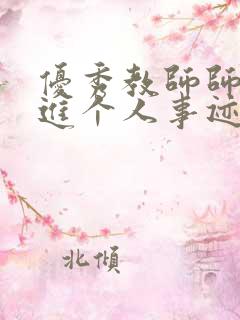 優秀教師師
進个人事迹
北傾